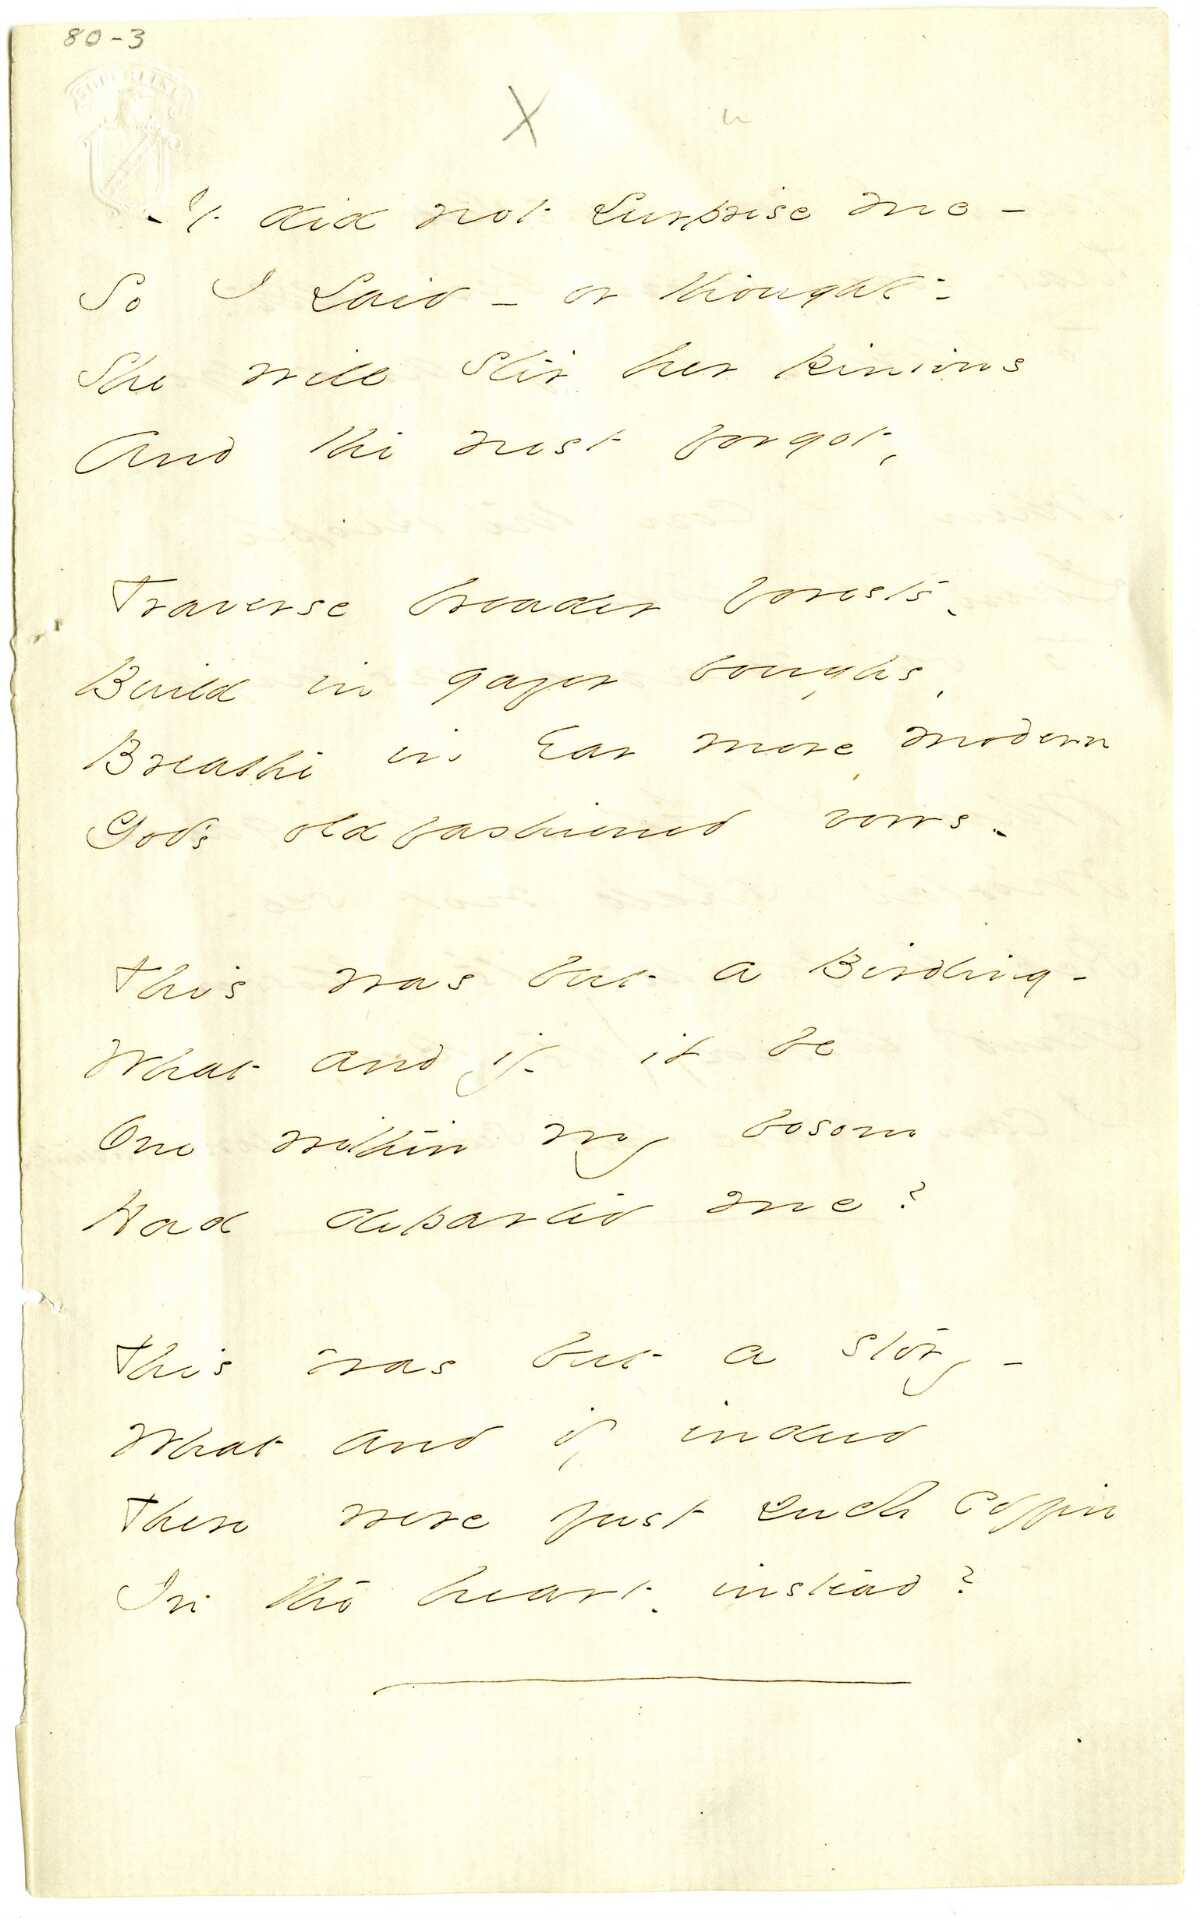 80-3
X
It did not surprise me -
So I said - or thought -
She will stir her pinions
And the nest forgot,
Traverse broader forests -
Build in gayer boughs,
Breathe in Ear more modern
God's old fashioned vows -
This was but a Birdling -
What and if it be
One within my bosom
Had departed me?
This was but a story -
What and if indeed
There were just such coffin
In the heart - instead?